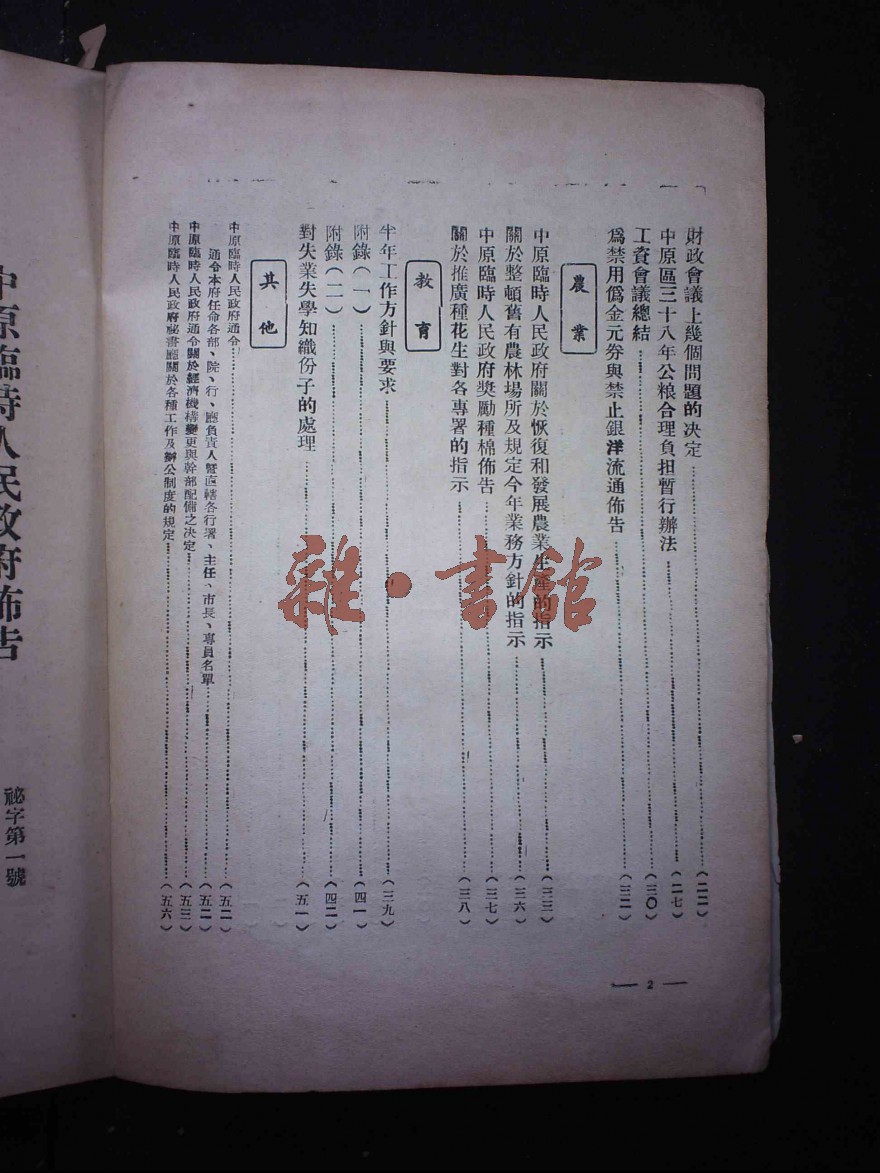 財政會議上幾個問題的決定……(二二)
中原區三十八年公粮合理負担暫行辦法……(二七)
工資會議總結……(三〇)
爲禁用僞金元券與禁止銀洋流通佈告……(三二)
農業
中原臨時人民政府關於恢復和發展農業生產的指示……(三三)
關於整頓舊有農林場所及規定今年業務方針的指示……(三六)
中原臨時人民政府獎勵種棉佈告……(三七)
關於推廣種花生對各專署的指示……(三八)
教育
半年工作方針與要求……(三九)
附錄(一)……(四一)
附錄(二)……(四二)
對失業失學知識份子的處理……(五一)
其他
中原臨時人民政府通令……(五二)
通令本府任命各部、院、行、廳負責人暨直轄各行署、主任、市長、專員名單……(五二)
中原臨時人民政府通令關於經濟機構變更與幹部配備之決定……(五三)
中原臨時人民政府祕書廳關於各種工作及辦公制度的規定……(五六)
— 2 —
中原臨時人民政府佈告
祕字第一號
雜·書館